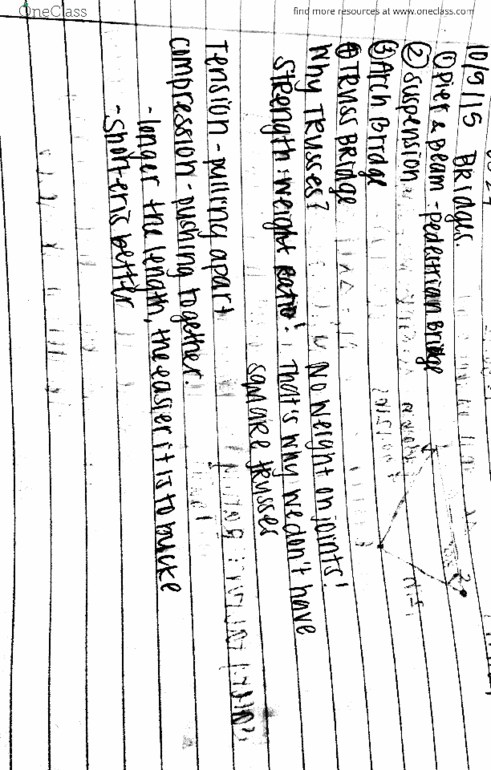 OneClass
find more resources at www.oneclass.com
10/9/15 Bridges
① Pier & Beam - Pedestrian Bridge
② Suspension
③ Arch Bridge
④ Truss Bridge
Why Trusses? No weight on joints!
Strength:weight Ratio! That's why we don't have
square trusses
Tension - pulling apart
compression - pushing together.
- longer the length, the easier it is to bucke
- Shorter is better